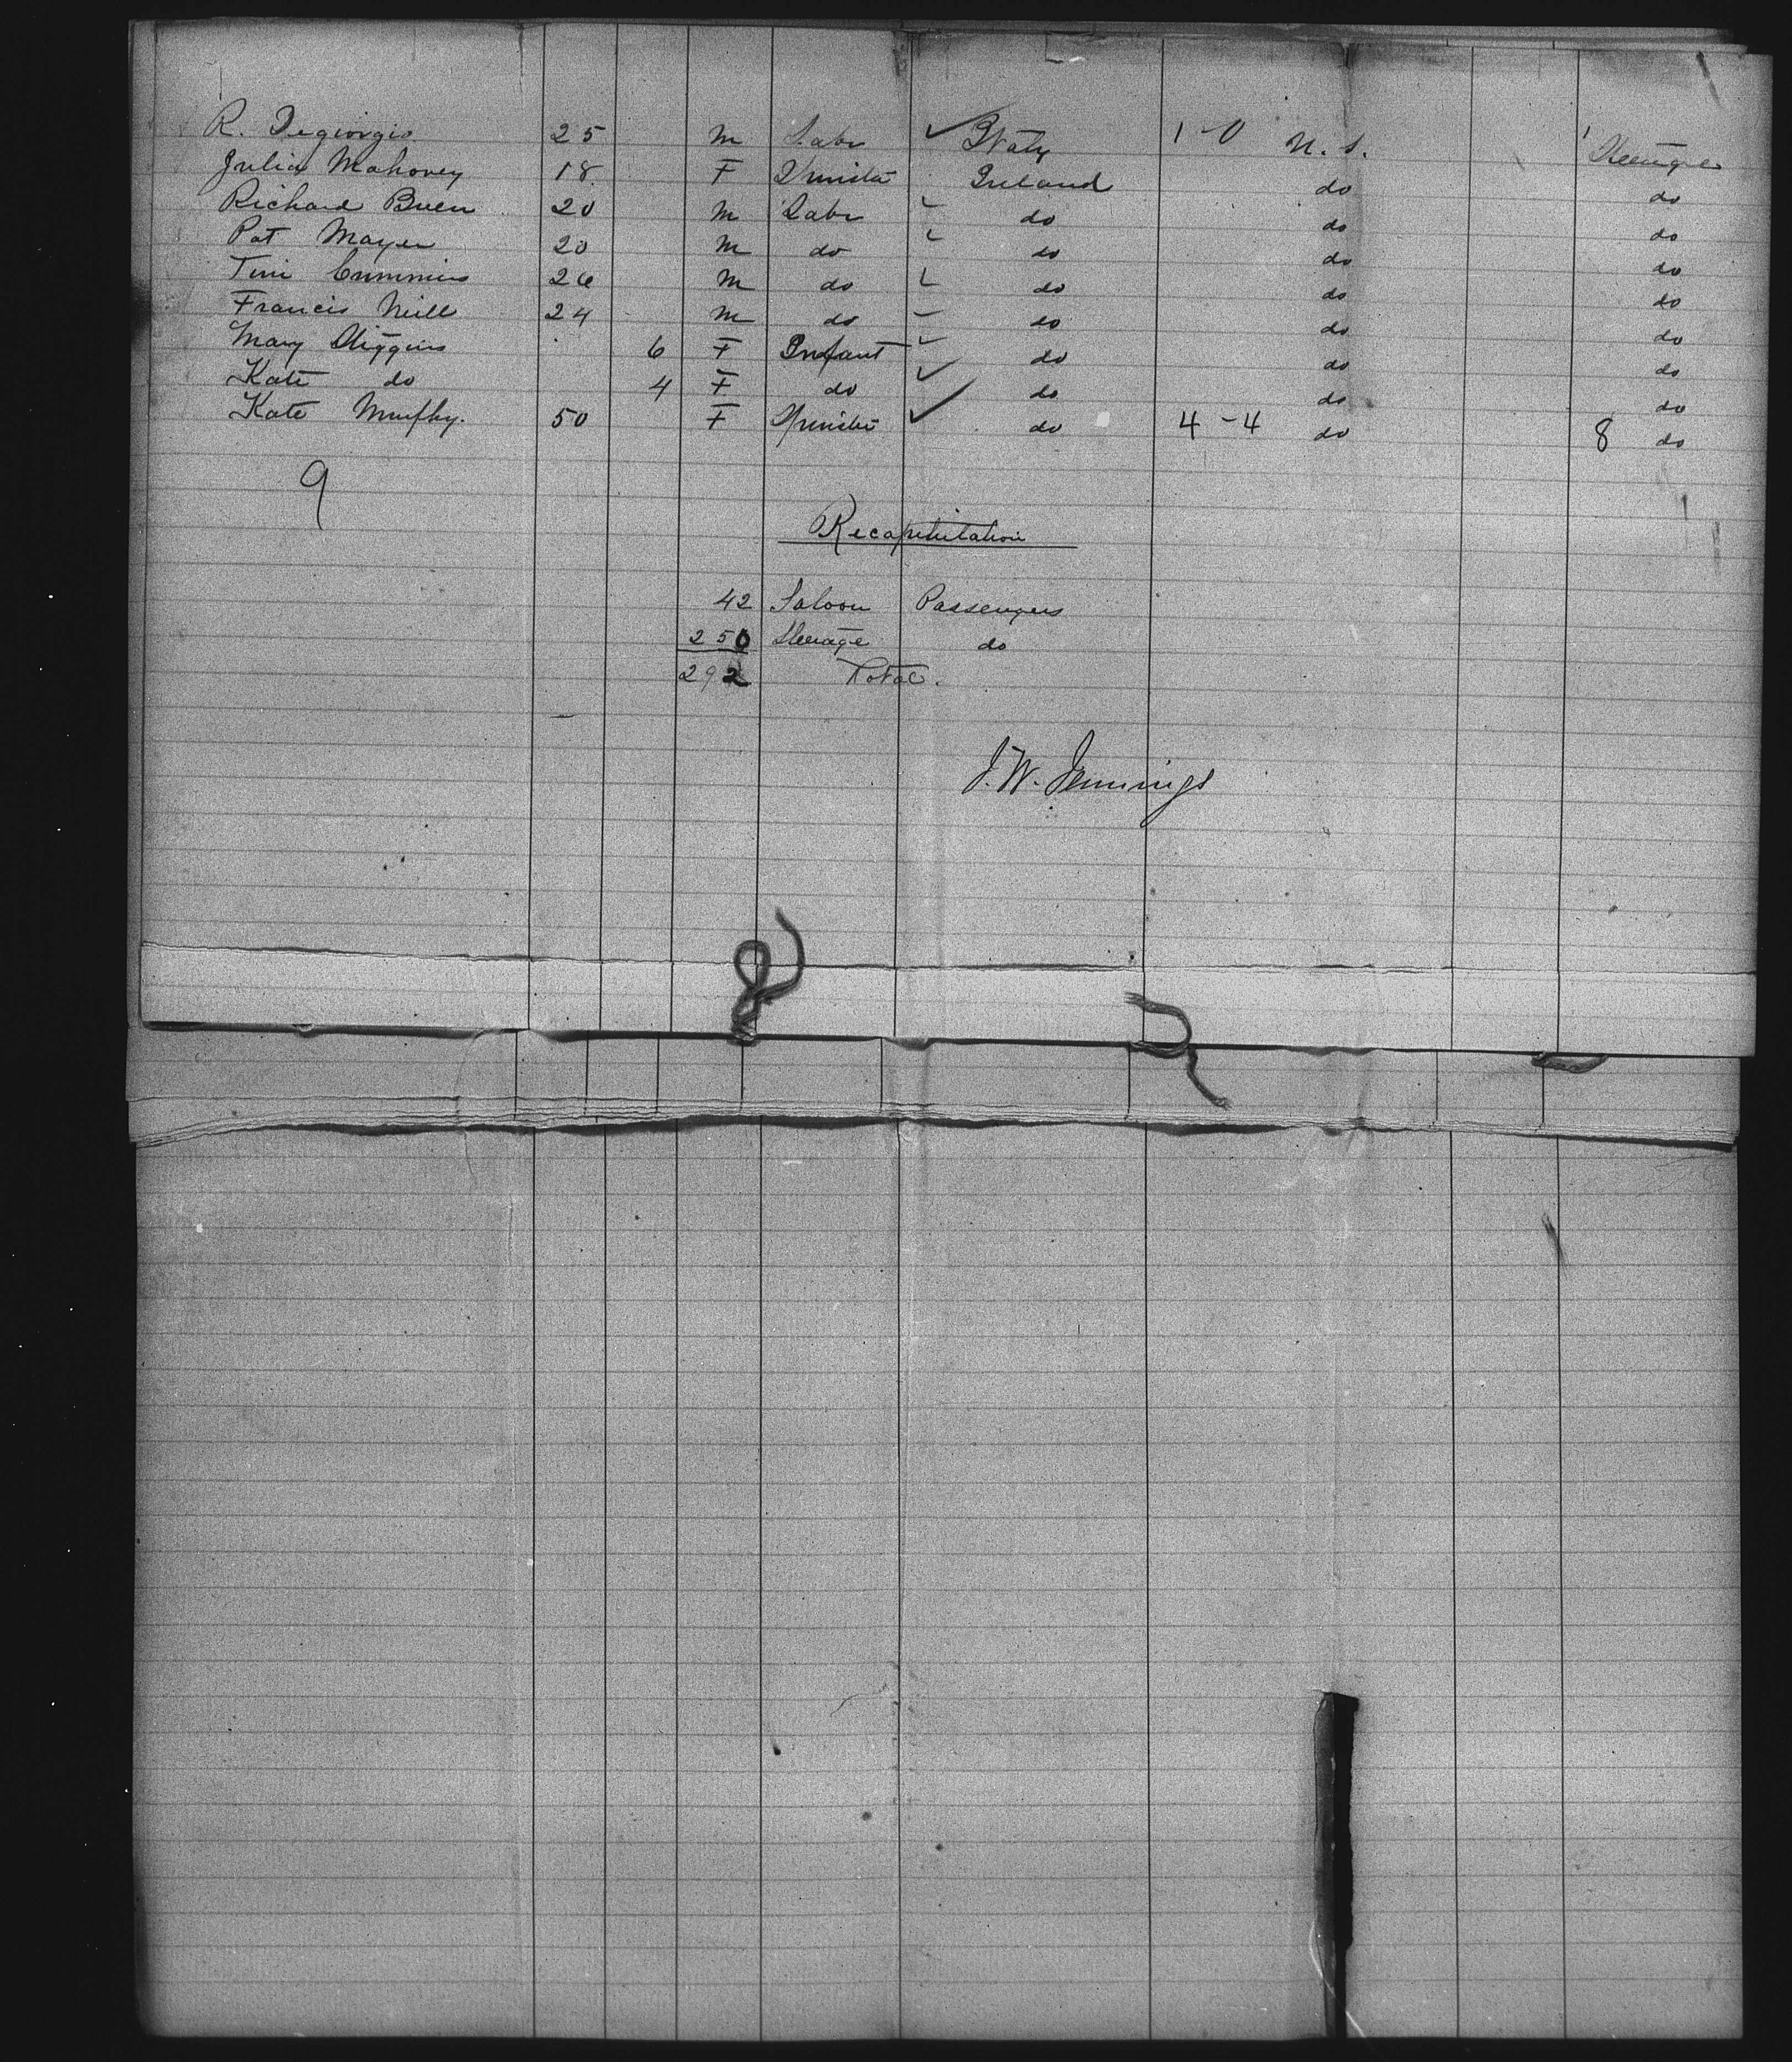 R. Degiorgio 25 m Labr ✓ Italy 1-0 U.S. 1 Steerage
Julia Mahoney 18 F Spinster Ireland do do
Richard Buen 20 m Labr ✓ do do do
Pat Mayer 20 m do ✓ do do do
Tim Cummins 26 m do ✓ do do do
Francis Neill 24 m do ✓ do do do
Mary Higgins 6 F Infant ✓ do do do
Kate do 4 F do ✓ do do do
Kate Murphy. 50 F Spinster ✓ do 4-4 do 8 do
9
Recapitulation
42 Saloon Passengers
250 Steerage do
292 Total.
J. W. Jennings